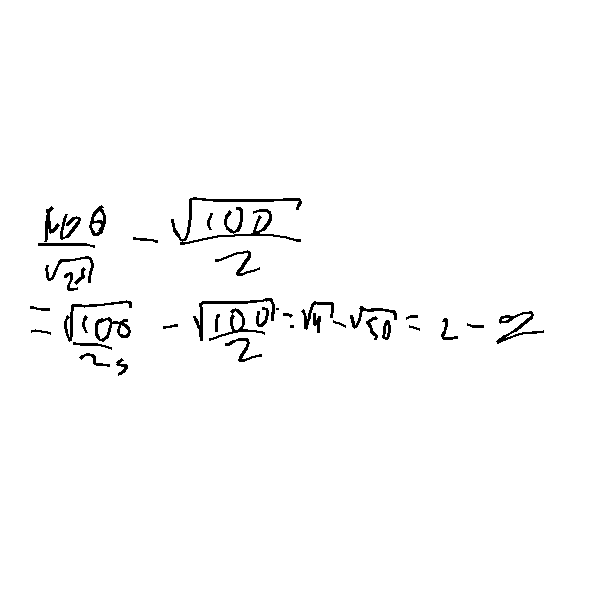 100/√25 - √100/2
= √100/25 - √100/2 = √4 - √50 = 2 - 2